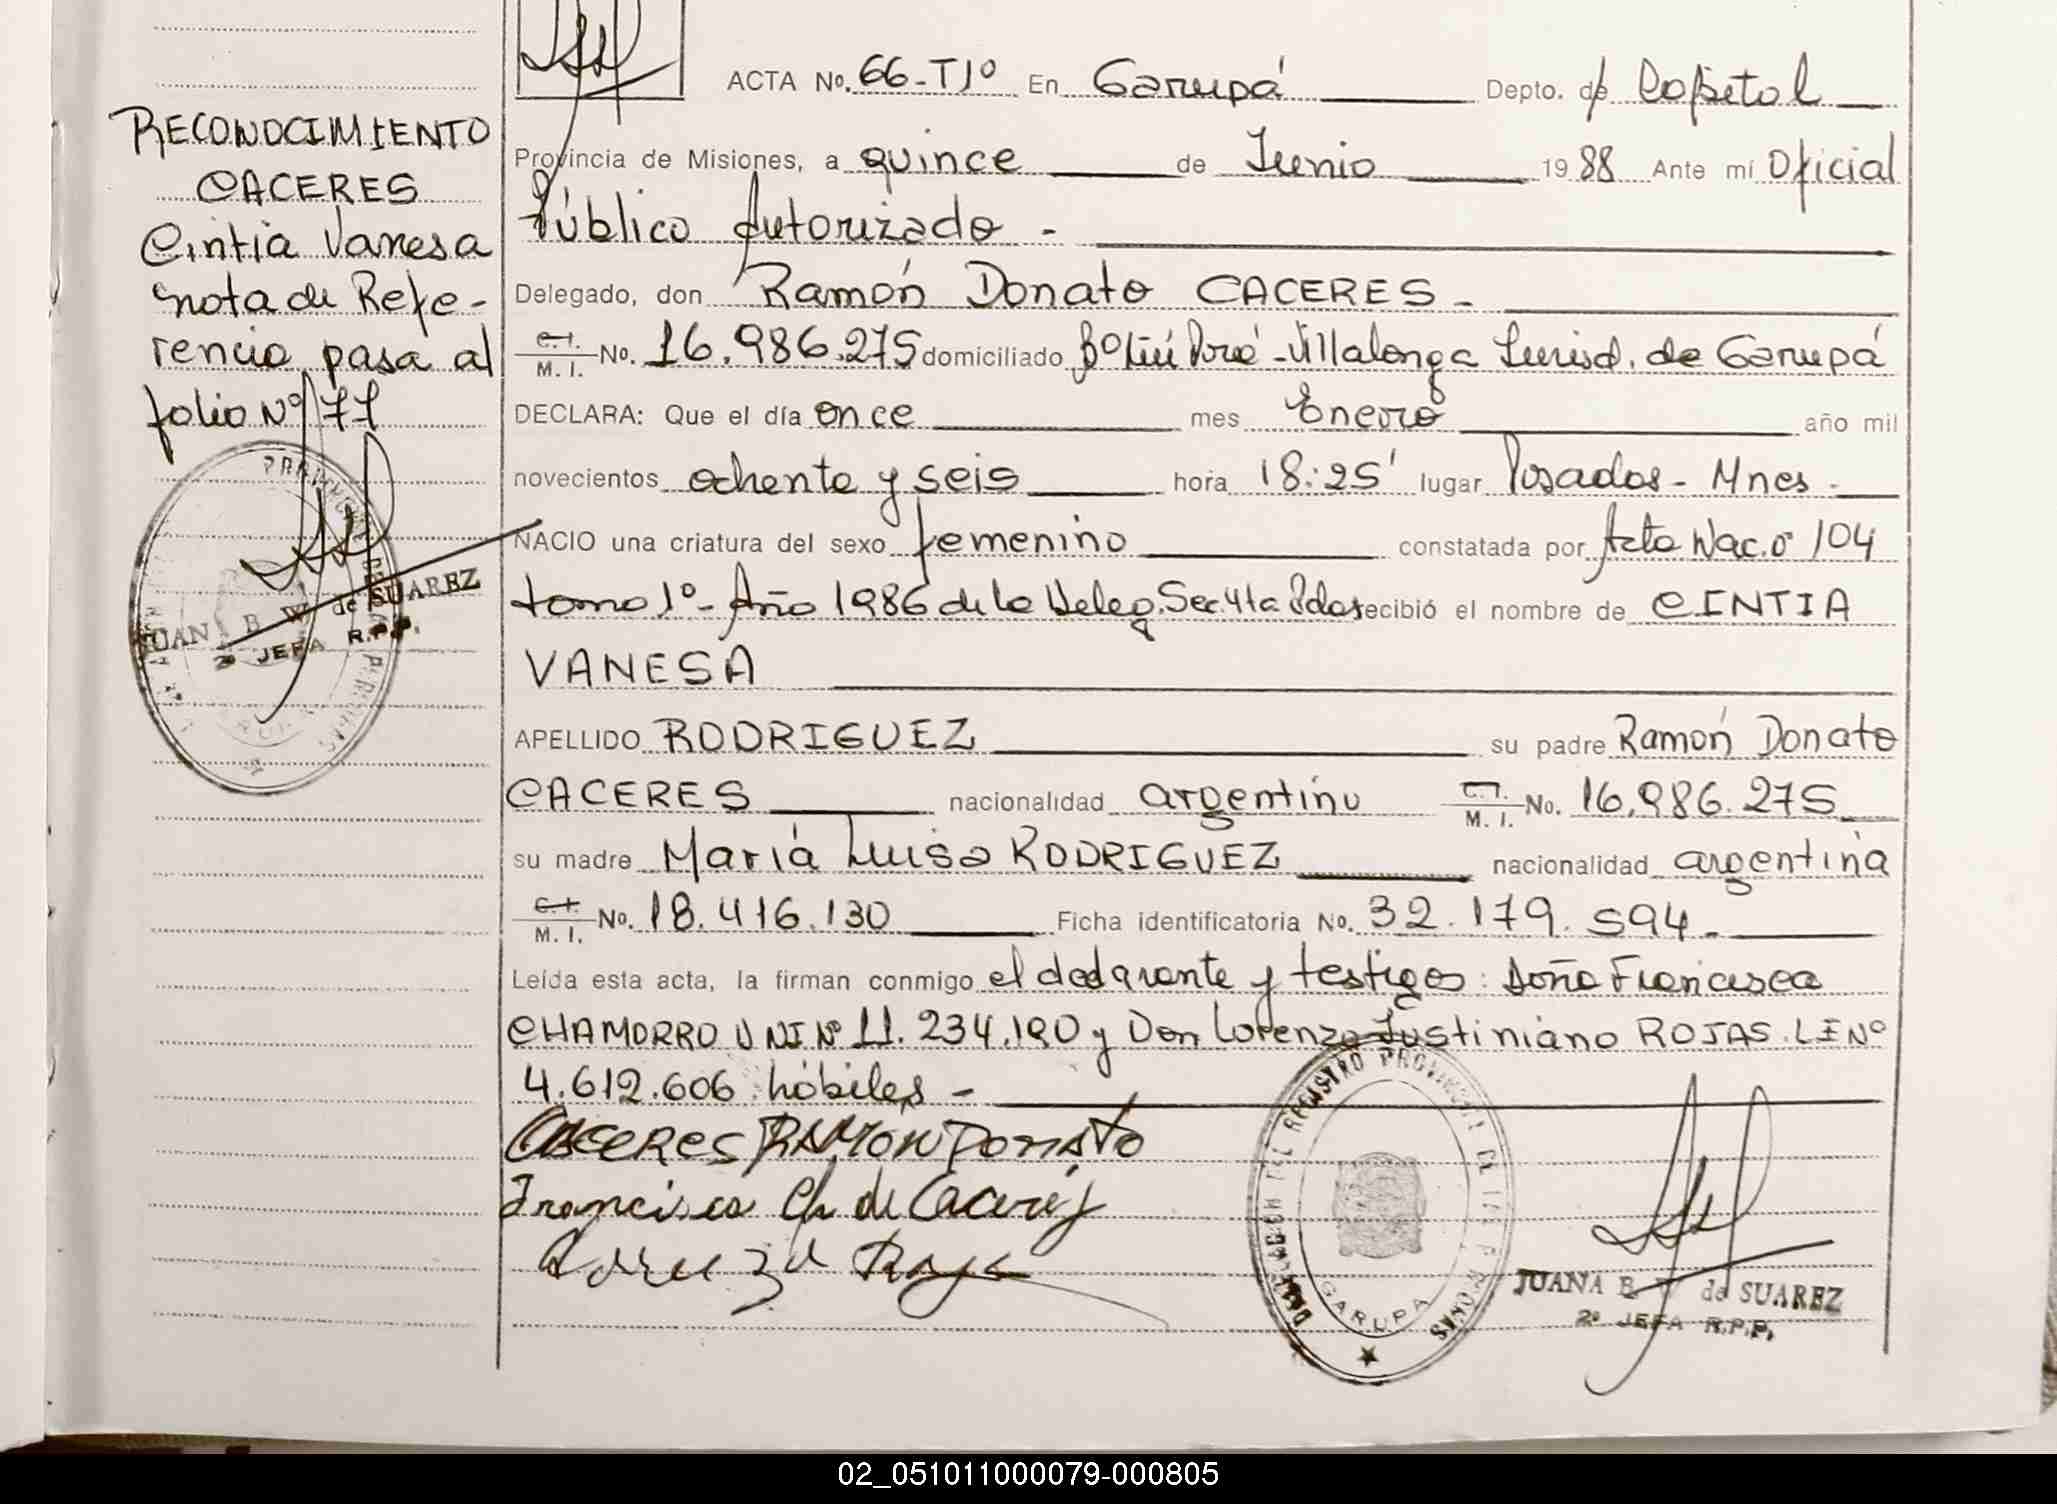 ACTA No. 66-Tº1º En Garupá Depto. de Capital
RECONOCIMIENTO
Provincia de Misiones, a quince de Junio 1988 Ante mí Oficial
CACERES
Público Autorizado -
Cintia Vanesa
nota de Refe-
Delegado, don Ramón Donato CACERES -
rencia pasa al
C.I. M. I. No. 16.986.275 domiciliado Bº Villalonga Jurisd. de Garupá
folio Nº 77
DECLARA: Que el día once mes Enero año mil
novecientos ochenta y seis hora 18:25' lugar Posadas - Mnes -
NACIO una criatura del sexo femenino constatada por Acta Nac. 104
tomo 1º - Año 1986 de la Deleg. Sec. 4ta Pdas recibió el nombre de CINTIA
JUANA B. W. de SUAREZ
2º JEFA R.P.P.
VANESA
APELLIDO RODRIGUEZ su padre Ramón Donato
CACERES nacionalidad argentino C.I. M. I. No. 16.986.275
su madre María Luisa RODRIGUEZ nacionalidad argentina
C.I. M. I. No. 18.416.130 Ficha identificatoria No. 32.179.594 -
Leída esta acta, la firman conmigo el declarante y testigos: Doña Francisca
CHAMORRO DNI Nº 11.234.190 y Don Lorenzo Justiniano ROJAS. LE Nº
4.612.606 hábiles -
CACERES RAMON DONATO
Francisca Ch de Caceres
Lorenzo Rojas
DELEGACION DEL REGISTRO PROVINCIAL DE LAS PERSONAS
GARUPA
JUANA B. W. de SUAREZ
2º JEFA R.P.P.
02_051011000079-000805